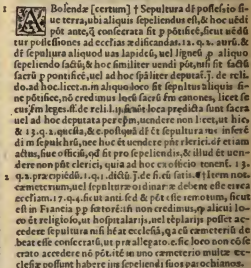 Bosendæ [certum] † Sepultura dż possessio si-
ue terra, ubi aliquis sepeliendus est, & hoc uẽdi
pōt ante, q̃ consecrata sit p põtificẽ, sicut uẽdũ
tur possessiones ad ecclias ædificandas. 12. q. 2. auru. &
dr sepultura aliquod uas lapideũ, uel ligneũ p aliquo
sepeliendo factũ; & hoc similiter uendi pōt, nisi sit factũ
sacrũ p pontificẽ, uel ad hoc spāliter deputat. j. de reli.
do. ad hoc. licet. n. in aliquo loco sit sepultus aliquis si-
ne põtifice, nō credimus locũ sacrũ
eius leges. ff. de reli. l. pdicta sunt sacra
uel ad hoc deputata uendere non licet, ut hic,
& 13. q. 2. quæsta, & c. postquã dr et sepultura ius infere
di in sepulchrũ, nec hoc ēt uendere pñt clerici. dr etiam
actus, siue officiũ, qd fit pro sepeliendis, & illud ēt uen-
dere non pñt clerici, quia ad hoc ex officio tenent. 13.
q. 2. præcipiẽdũ. 1. q. 1. dictũ. j. de si. cũ satis. ¶ Item not.
cœmeterium, uel sepulturæ ordinariæ debent esse circa
eccliam. 17. q. 4. sicut anti. sed & pōt esse remotum, sicut
est in Francia
eo ēt religioso, ut hospitalarij, uel tēplarijs posset ac-
cedere sepultura nisi heāt eccliã, qa eũ cœmeteriũ de
beat esse consecratũ, ut præallegato. c. sic loco non cōse
crato accedere nō pōt. itē in uno cœmeterio multæ ec-
clesiæ possunt habere ius sepeliendi suos parochianos.